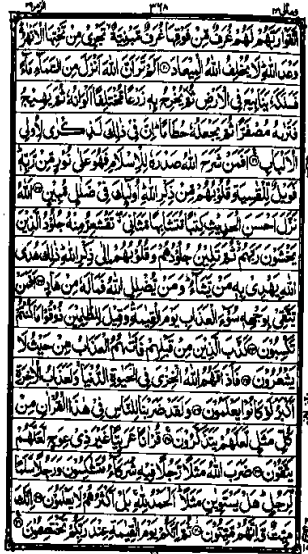 ۳۶۸
اتَّقَوْا رَبَّهُمْ لَهُمْ غُرَفٌ مِّنْ فَوْقِهَا غُرَفٌ مَّبْنِيَّةٌ تَجْرِي مِنْ تَحْتِهَا الْأَنْهٰرُ
وَعْدَ اللّٰهِ لَا يُخْلِفُ اللّٰهُ الْمِيعَادَ ۝ أَلَمْ تَرَ أَنَّ اللّٰهَ أَنْزَلَ مِنَ السَّمَآءِ مَآءً
فَسَلَكَهٗ يَنَابِيعَ فِي الْأَرْضِ ثُمَّ يُخْرِجُ بِهٖ زَرْعًا مُّخْتَلِفًا أَلْوَانُهٗ ثُمَّ يَهِيجُ
فَتَرٰىهُ مُصْفَرًّا ثُمَّ يَجْعَلُهٗ حُطَامًا إِنَّ فِي ذٰلِكَ لَذِكْرٰى لِأُولِي
الْأَلْبَابِ ۝ أَفَمَنْ شَرَحَ اللّٰهُ صَدْرَهٗ لِلْإِسْلَامِ فَهُوَ عَلٰى نُورٍ مِّنْ رَّبِّهٖ
فَوَيْلٌ لِّلْقٰسِيَةِ قُلُوبُهُمْ مِّنْ ذِكْرِ اللّٰهِ أُولٰٓئِكَ فِي ضَلٰلٍ مُّبِينٍ ۝ اَللّٰهُ
نَزَّلَ أَحْسَنَ الْحَدِيثِ كِتٰبًا مُّتَشَابِهًا مَّثَانِيَ تَقْشَعِرُّ مِنْهُ جُلُودُ الَّذِينَ
يَخْشَوْنَ رَبَّهُمْ ثُمَّ تَلِينُ جُلُودُهُمْ وَقُلُوبُهُمْ إِلٰى ذِكْرِ اللّٰهِ ذٰلِكَ هُدَى
اللّٰهِ يَهْدِي بِهٖ مَنْ يَّشَآءُ وَمَنْ يُّضْلِلِ اللّٰهُ فَمَا لَهٗ مِنْ هَادٍ ۝ أَفَمَنْ
يَّتَّقِي بِوَجْهِهٖ سُوٓءَ الْعَذَابِ يَوْمَ الْقِيٰمَةِ وَقِيلَ لِلظّٰلِمِينَ ذُوقُوا مَا كُنْتُمْ
تَكْسِبُونَ ۝ كَذَّبَ الَّذِينَ مِنْ قَبْلِهِمْ فَأَتٰىهُمُ الْعَذَابُ مِنْ حَيْثُ لَا
يَشْعُرُونَ ۝ فَأَذَاقَهُمُ اللّٰهُ الْخِزْيَ فِي الْحَيٰوةِ الدُّنْيَا وَلَعَذَابُ الْاٰخِرَةِ
أَكْبَرُ لَوْ كَانُوا يَعْلَمُونَ ۝ وَلَقَدْ ضَرَبْنَا لِلنَّاسِ فِي هٰذَا الْقُرْاٰنِ مِنْ
كُلِّ مَثَلٍ لَّعَلَّهُمْ يَتَذَكَّرُونَ ۝ قُرْاٰنًا عَرَبِيًّا غَيْرَ ذِي عِوَجٍ لَّعَلَّهُمْ
يَتَّقُونَ ۝ ضَرَبَ اللّٰهُ مَثَلًا رَّجُلًا فِيهِ شُرَكَآءُ مُتَشٰكِسُونَ وَرَجُلًا سَلَمًا
لِّرَجُلٍ هَلْ يَسْتَوِيٰنِ مَثَلًا اَلْحَمْدُ لِلّٰهِ بَلْ أَكْثَرُهُمْ لَا يَعْلَمُونَ ۝ إِنَّكَ
مَيِّتٌ وَّإِنَّهُمْ مَّيِّتُونَ ۝ ثُمَّ إِنَّكُمْ يَوْمَ الْقِيٰمَةِ عِنْدَ رَبِّكُمْ تَخْتَصِمُونَ ۝